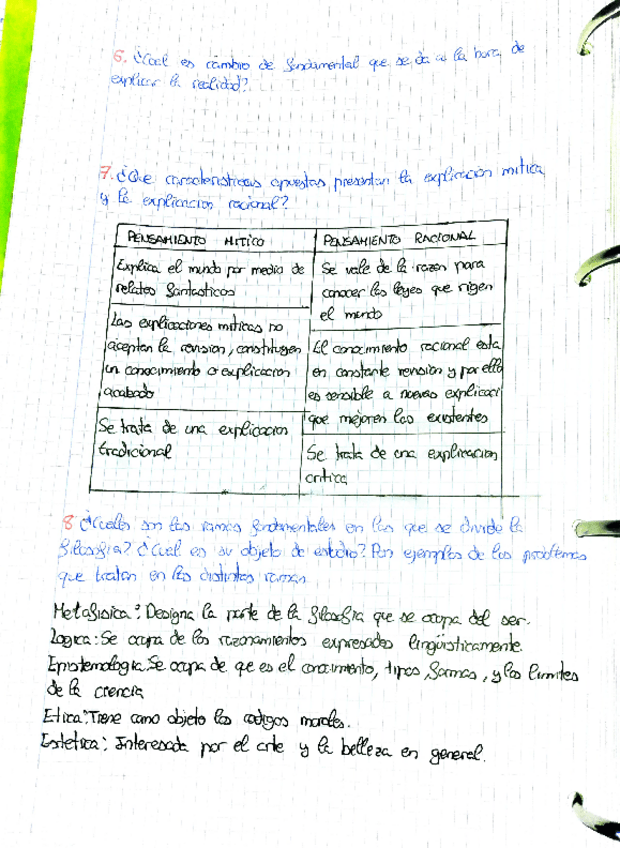 6. ¿Cual es cambio de fundamental que se da a la hora de
explicar la realidad?
7. ¿Que caracteristicas opuestas presentan la explicación mitica
y la explicacion racional?
PENSAMIENTO MITICO
PENSAMIENTO RACIONAL
Explica el mundo por medio de
relatos fantasticos
Se vale de la razon para
conocer las leyes que rigen
el mundo
Las explicaciones miticas no
aceptan la revision, constituyen
un conocimiento o explicacion
acabado
El conocimiento racional esta
en constante revision y por ello
es sensible a nuevas explicaci
que mejoren las existentes
Se trata de una explicacion
tradicional
Se trata de una explicacion
critica
8 ¿Cuales son las ramas fundamentales en las que se divide la
filosofia? ¿Cual es su objeto de estudio? Pon ejemplos de los problemas
que tratan en las distintas ramas
Metafisica: Designa la parte de la filosofia que se ocupa del ser.
Logica: Se ocupa de los razonamientos expresados lingüisticamente.
Epistemologia: Se ocupa de que es el conocimiento, tipos, formas, y los limites
de la ciencia
Etica: Tiene como objeto los codigos morales.
Estetica: Interesada por el arte y la belleza en general.